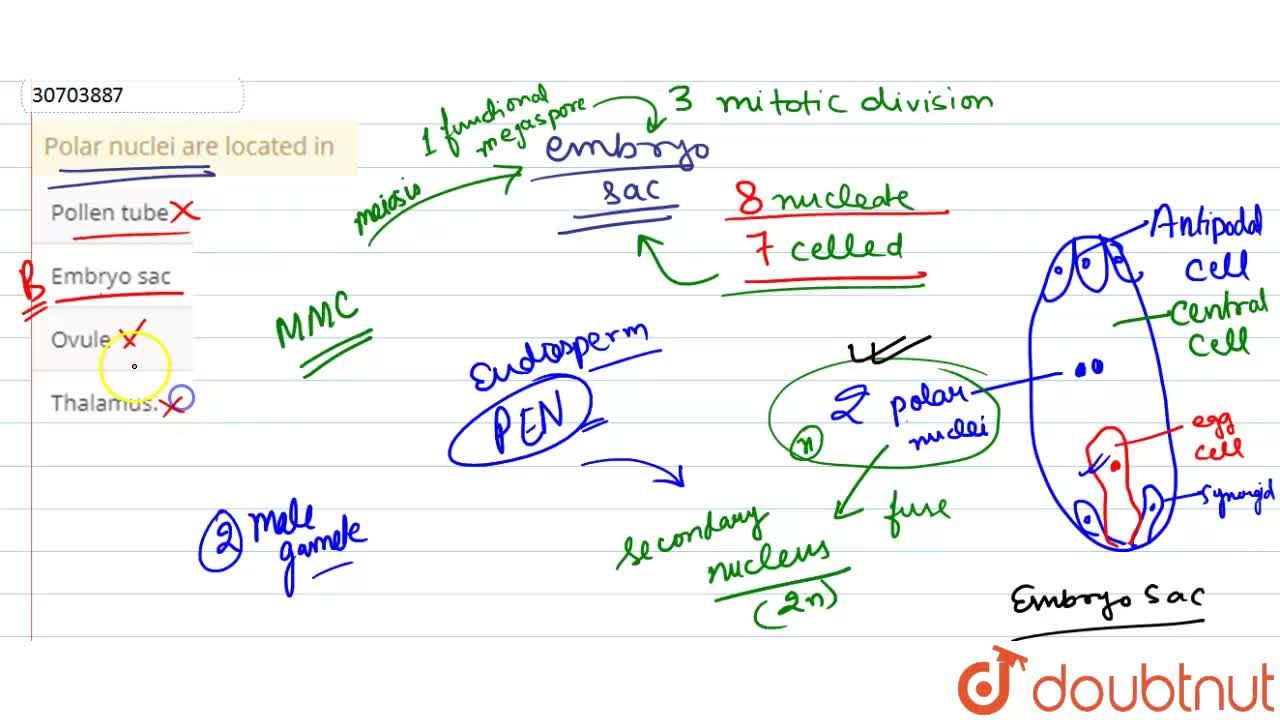 30703887
Polar nuclei are located in
Pollen tube
B Embryo sac
Ovule
Thalamus.
1 functional
megaspore
3 mitotic division
embryo
sac
meiosis
8 nucleate
7 celled
MMC
Endosperm
PEN
2 male
gamete
2 polar
nuclei
n
fuse
secondary
nucleus
(2n)
Antipodal
cell
central
cell
egg
cell
synergid
Embryo sac
doubtnut